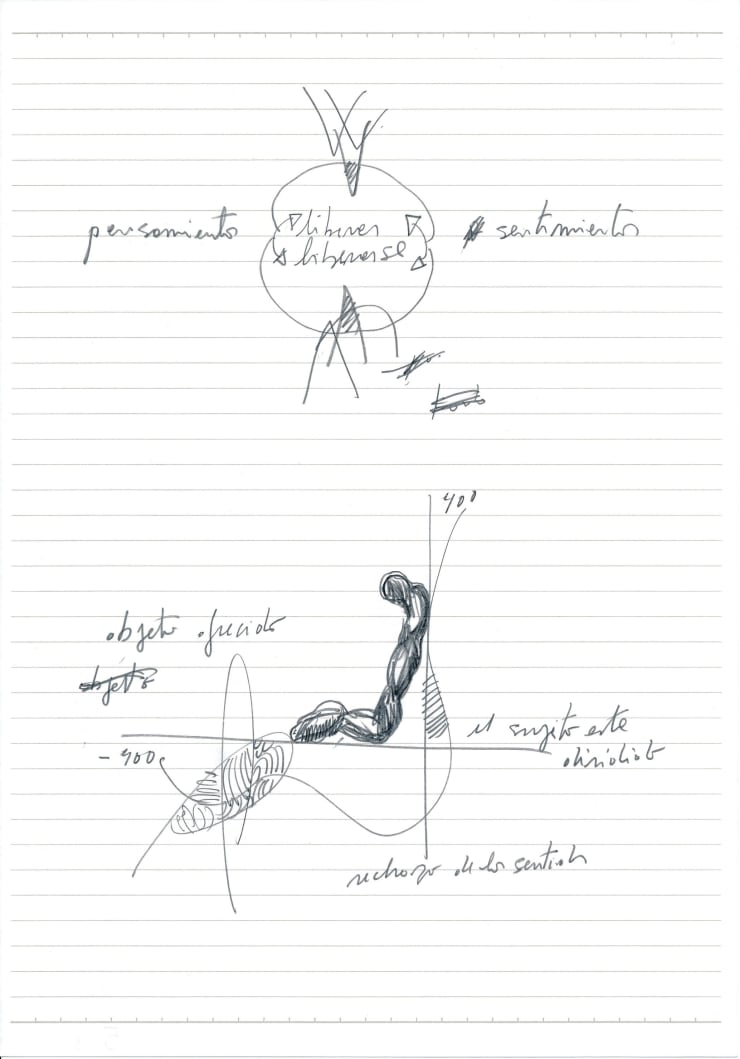 pensamiento
sentimientos
liberar
liberarse
400
objeto ofrecido
objeto
- 400
el sujeto este
dividido
rechazo de los sentidos